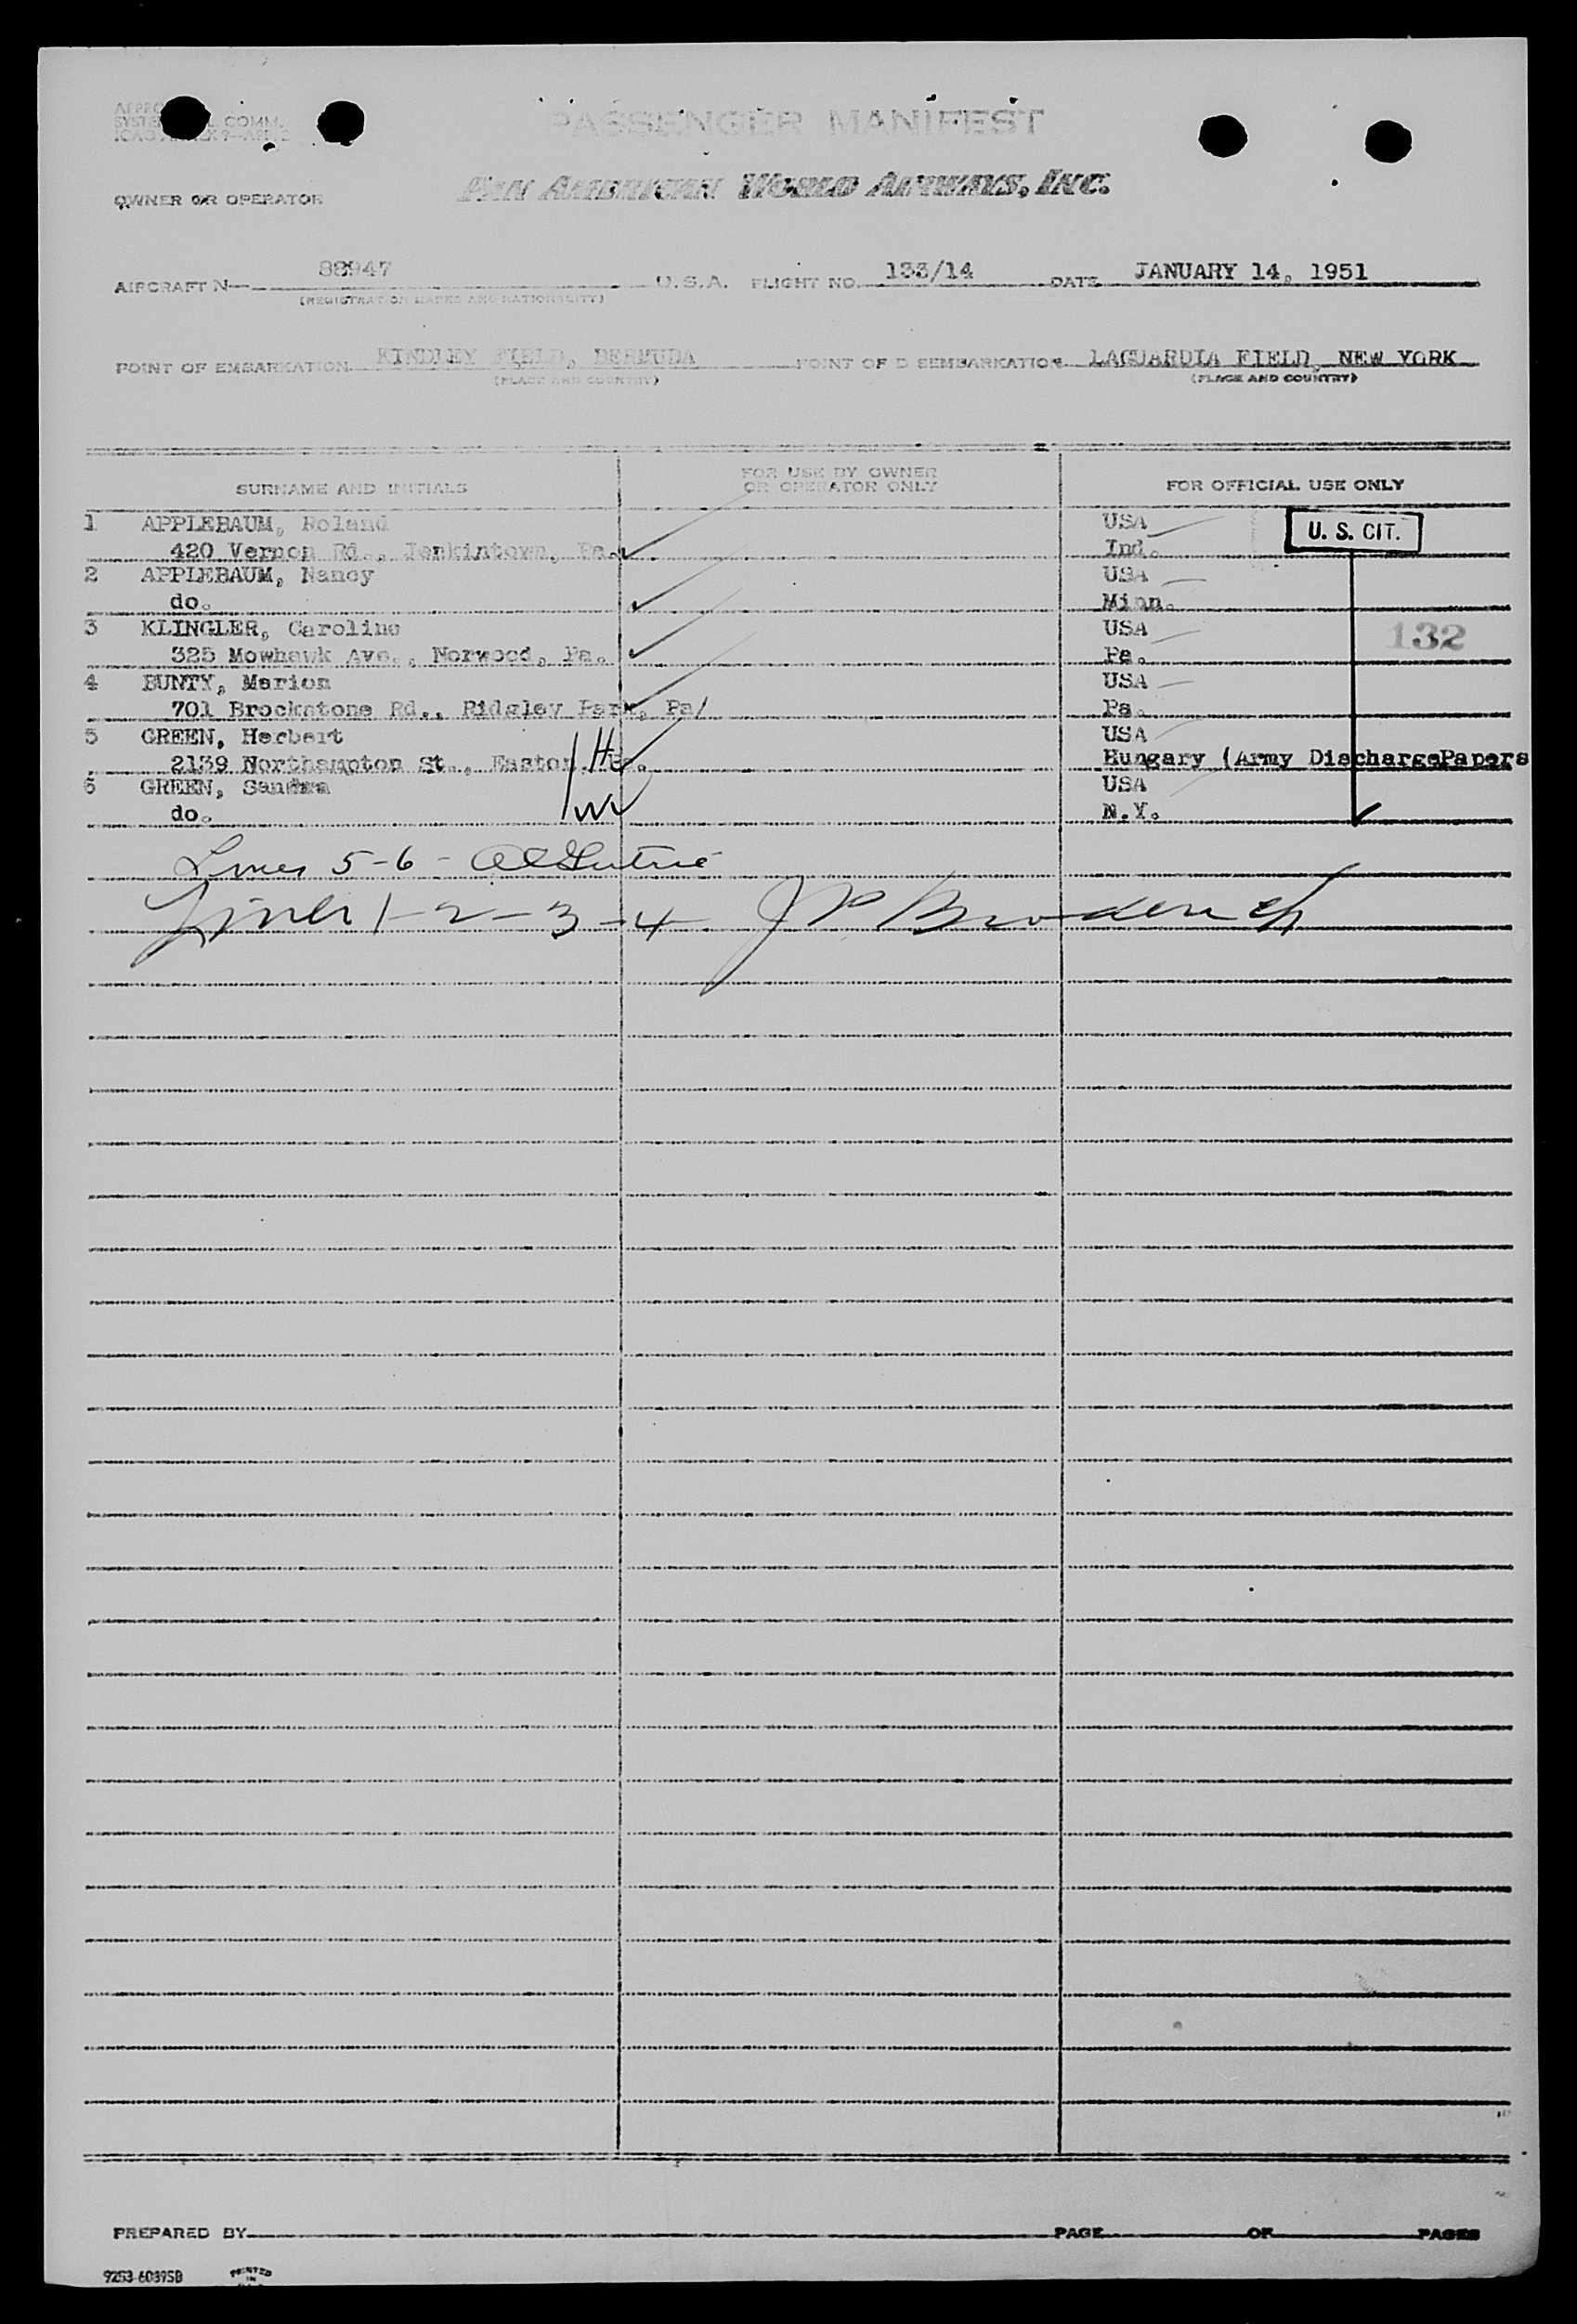 PASSENGER MANIFEST
OWNER OR OPERATOR PAN AMERICAN WORLD AIRWAYS, INC.
AIRCRAFT N 88947 U.S.A. FLIGHT NO. 133/14 DATE JANUARY 14, 1951
(REGISTRATION MARKS AND NATIONALITY)
POINT OF EMBARKATION KINDLEY FIELD, BERMUDA POINT OF DISEMBARKATION LAGUARDIA FIELD, NEW YORK
(PLACE AND COUNTRY) (PLACE AND COUNTRY)
SURNAME AND INITIALS FOR USE BY OWNER OR OPERATOR ONLY FOR OFFICIAL USE ONLY
1 APPLEBAUM, Roland USA U. S. CIT.
420 Vernon Rd., Jenkintown, Pa. Ind.
2 APPLEBAUM, Nancy USA
do. Minn.
3 KLINGLER, Caroline USA 132
325 Mowhawk Ave., Norwood, Pa. Pa.
4 BUNTY, Marion USA
701 Brockstone Rd., Ridgley Park, Pa/ Pa.
5 GREEN, Herbert USA
2139 Northampton St., Easton, Pa. H Hungary (Army DischargePapers
6 GREEN, Sandra USA
do. W N.Y.
Lines 5-6 -
Lines 1-2-3-4 J P Broderick
PREPARED BY PAGE OF PAGES
PRINTED
IN